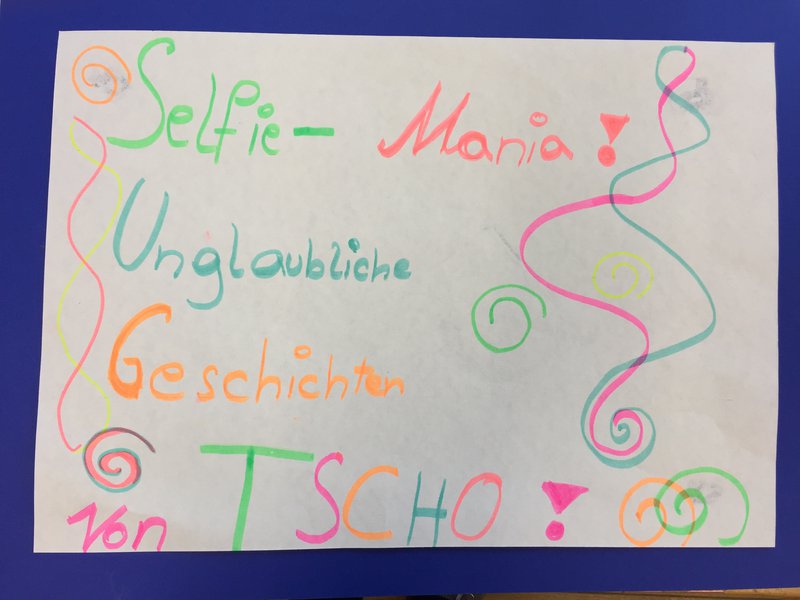 Selfie- Mania!
Unglaubliche
Geschichten
Von TSCHO!